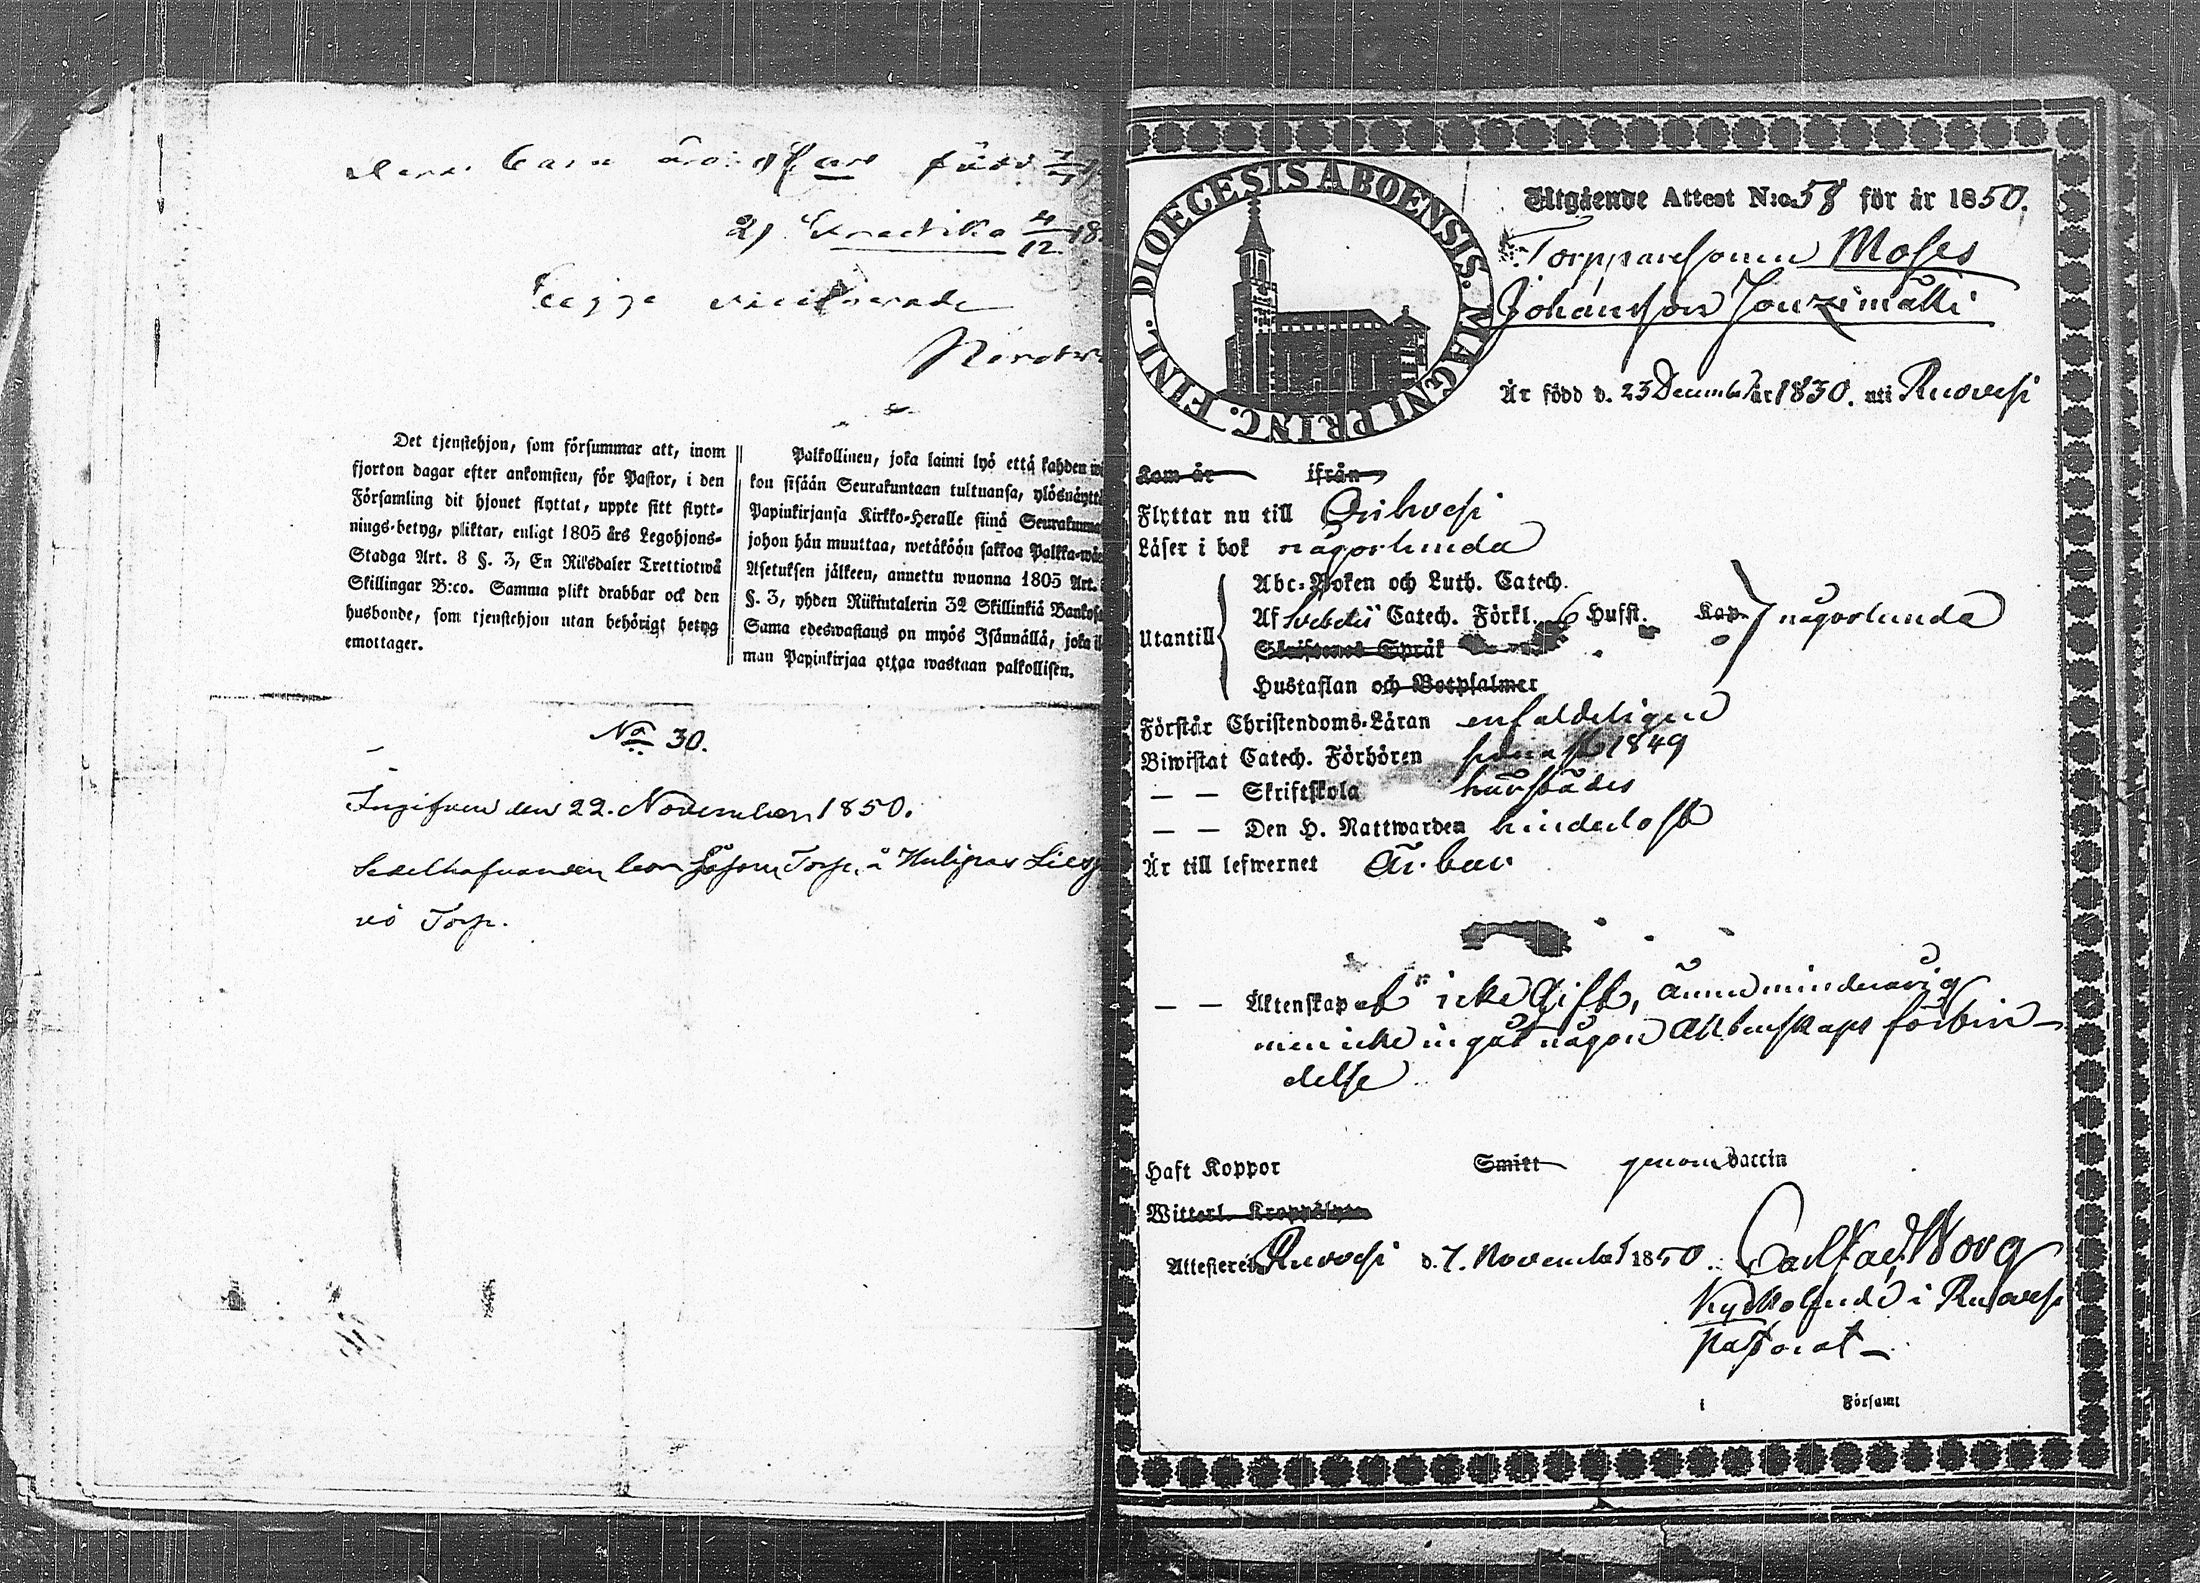 Barn
född
2)
4/12 18
Begge vaccinerade
Det tjenstehjon, som försummar att, inom
fjorton dagar efter ankomsten, för Pastor, i den
Församling dit hjonet flyttat, uppte sitt flytt-
nings-betyg, pliktar, enligt 1805 års Legohjons-
Stadga Art. 8 §. 3, En Riksdaler Trettiotwå
Skillingar B:co. Samma plikt drabbar ock den
husbonde, som tjenstehjon utan behörigt betyg
emottager.
Palkollinen, joka laimi lyö että kahden
kon sisään Seurakuntaan tultuansa, ylösnäyttä
Papinkirjansa Kirkko-Heralle siinä Seurakunna
johon hän muuttaa, wetäköön sakkoa Palkka-wäe
Asetuksen jälkeen, annettu wuonna 1805 Art.
§. 3, yhden Riikintalerin 32 Skillinkiä Bankos
Sama edeswastaus on myös Isännällä, joka il
man Papinkirjaa ottaa wastaan palkollisen.
No 30.
Ingifven den 22. November 1850.
Sedelhafvanden Torp. å
vö Torp.
DIOECESIS ABOENSIS. MAGNI PRINC. FINL.
Utgående Attest N:o 58 för år 1850.
Torpparesonen Moses
Johansson
Är född d. 23 December år 1830. uti Ruovesi
Kom år ifrån
Flyttar nu till Orihvesi
Läser i bok någorlunda
Utantill
Abc-Boken och Luth. Catech.
Af Svebelii Catech. Förkl. 6 Hufst. Kap någorlunda
Skriftenes Språk
Hustaflan och Botpsalmer
Förstår Christendoms-Läran enfaldeligen
Biwistat Catech. Förhören senast 1849
— — Skriftskola härstädes
— — Den H. Nattwarden hinderlöst
Är till lefwernet Ärbar
— — Äktenskapet icke Gift, ännu minderårig
men icke ingått någon Äktenskaps förbin-
delse.
Haft Koppor Smitt genom Vaccin
Witterl. Kroppslyte
Attesterer Ruovesi d. 7. November 1850. Borg
Kyrkoherde i Ruovesi
Pastorat
i Församl